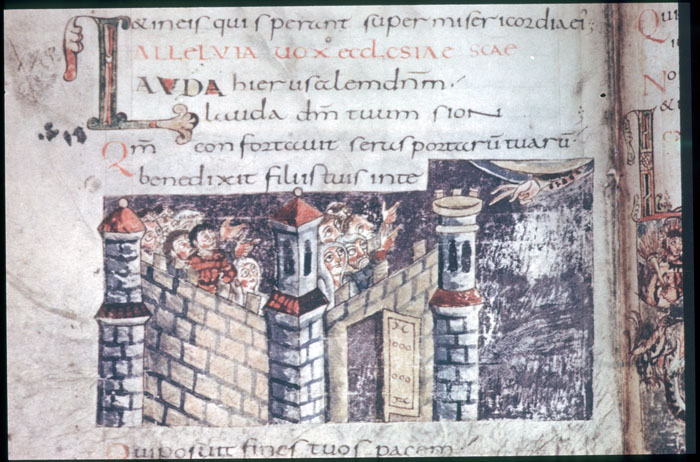 & in eis qui sperant super misericordia ei
ALLELVIA uox ecclesiae scae
LAVDA hierusalem dnm.
lauda dm tuum sion
Qm confortauit seras portarū tuarū
benedixit filiis tuis in te
Qui posuit fines tuos pacem